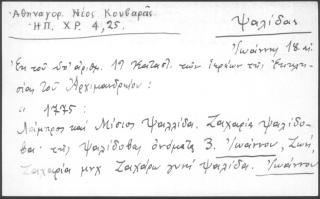 Ἀθηναγόρ. Νέος Κουβαρᾶς
ἨΠ. ΧΡ. 4, 25.
Ψαλίδας
Ἰωάννης 18 αἰ.
Ἐκ τοῦ ὑπ' ἀριθμ. 17 Καταστ. τῶν ἱερέων τῆς Ἐκκλη-
σίας τοῦ Ἀρχιμανδρείου:
" 1775:
Λάμπρος καὶ Μίσιος Ψαλλίδα. Ζαχαρία ψαλίδο-
βας. τῆς ψαλίδοβας ὀνόματα 3. Ἰωάννου, Ζωή,
Ζαχαρία μνχ Ζαχάρω γυνή ψαλίδ. Ἰωάννου